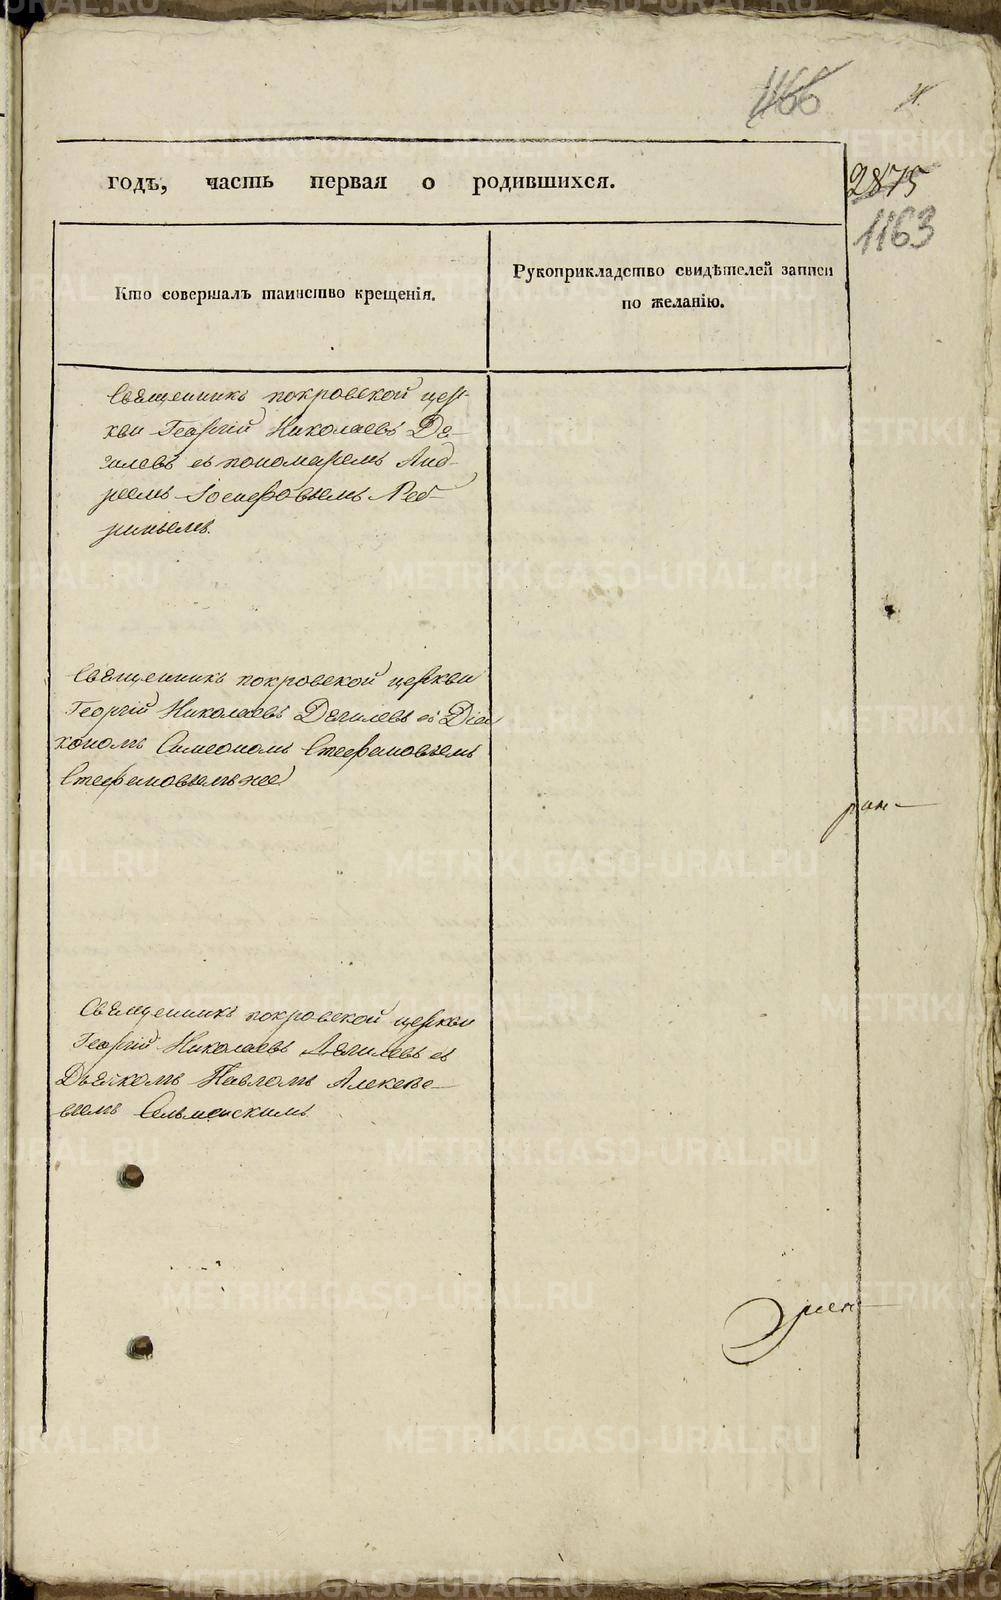 1166
2875
1163
годъ, часть первая о родившихся.
Кто совершалъ таинство крещенія.
Рукоприкладство свидѣтелей записи
по желанію.
Священникъ покровской цер-
кви Георгій Николаевъ
съ пономаремъ Анд-
реемъ Іосифовымъ
Священникъ покровской церкви
Георгій Николаевъ съ Діа
кономъ Симеономъ Стефановымъ
Стефановымъ же
Священникъ покровской церкви
Георгій Николаевъ съ
Дьячкомъ Павломъ Алексѣе-
вымъ
METRIKI.GASO-URAL.RU